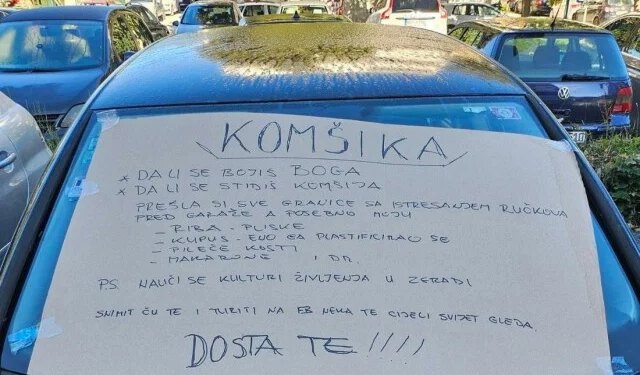 KOMŠIKA
* DA LI SE BOJIŠ BOGA
* DA LI SE STIDIŠ KOMŠIJA
PREŠLA SI SVE GRANICE SA ISTRESANJEM RUČKOVA
PRED GARAŽE A POSEBNO MOJU
- RIBA - PLJSKE
- KUPUS - EVO GA PLASTIFICIRAO SE
- PILEĆE KOSTI
- MAKARONE I DR.
P.S. NAUČI SE KULTURI ŽIVLJENJA U ZGRADI
SNIMIT ĆU TE I TURITI NA FB NEKA TE CIJELI SVIJET GLEDA.
DOSTA TE!!!!